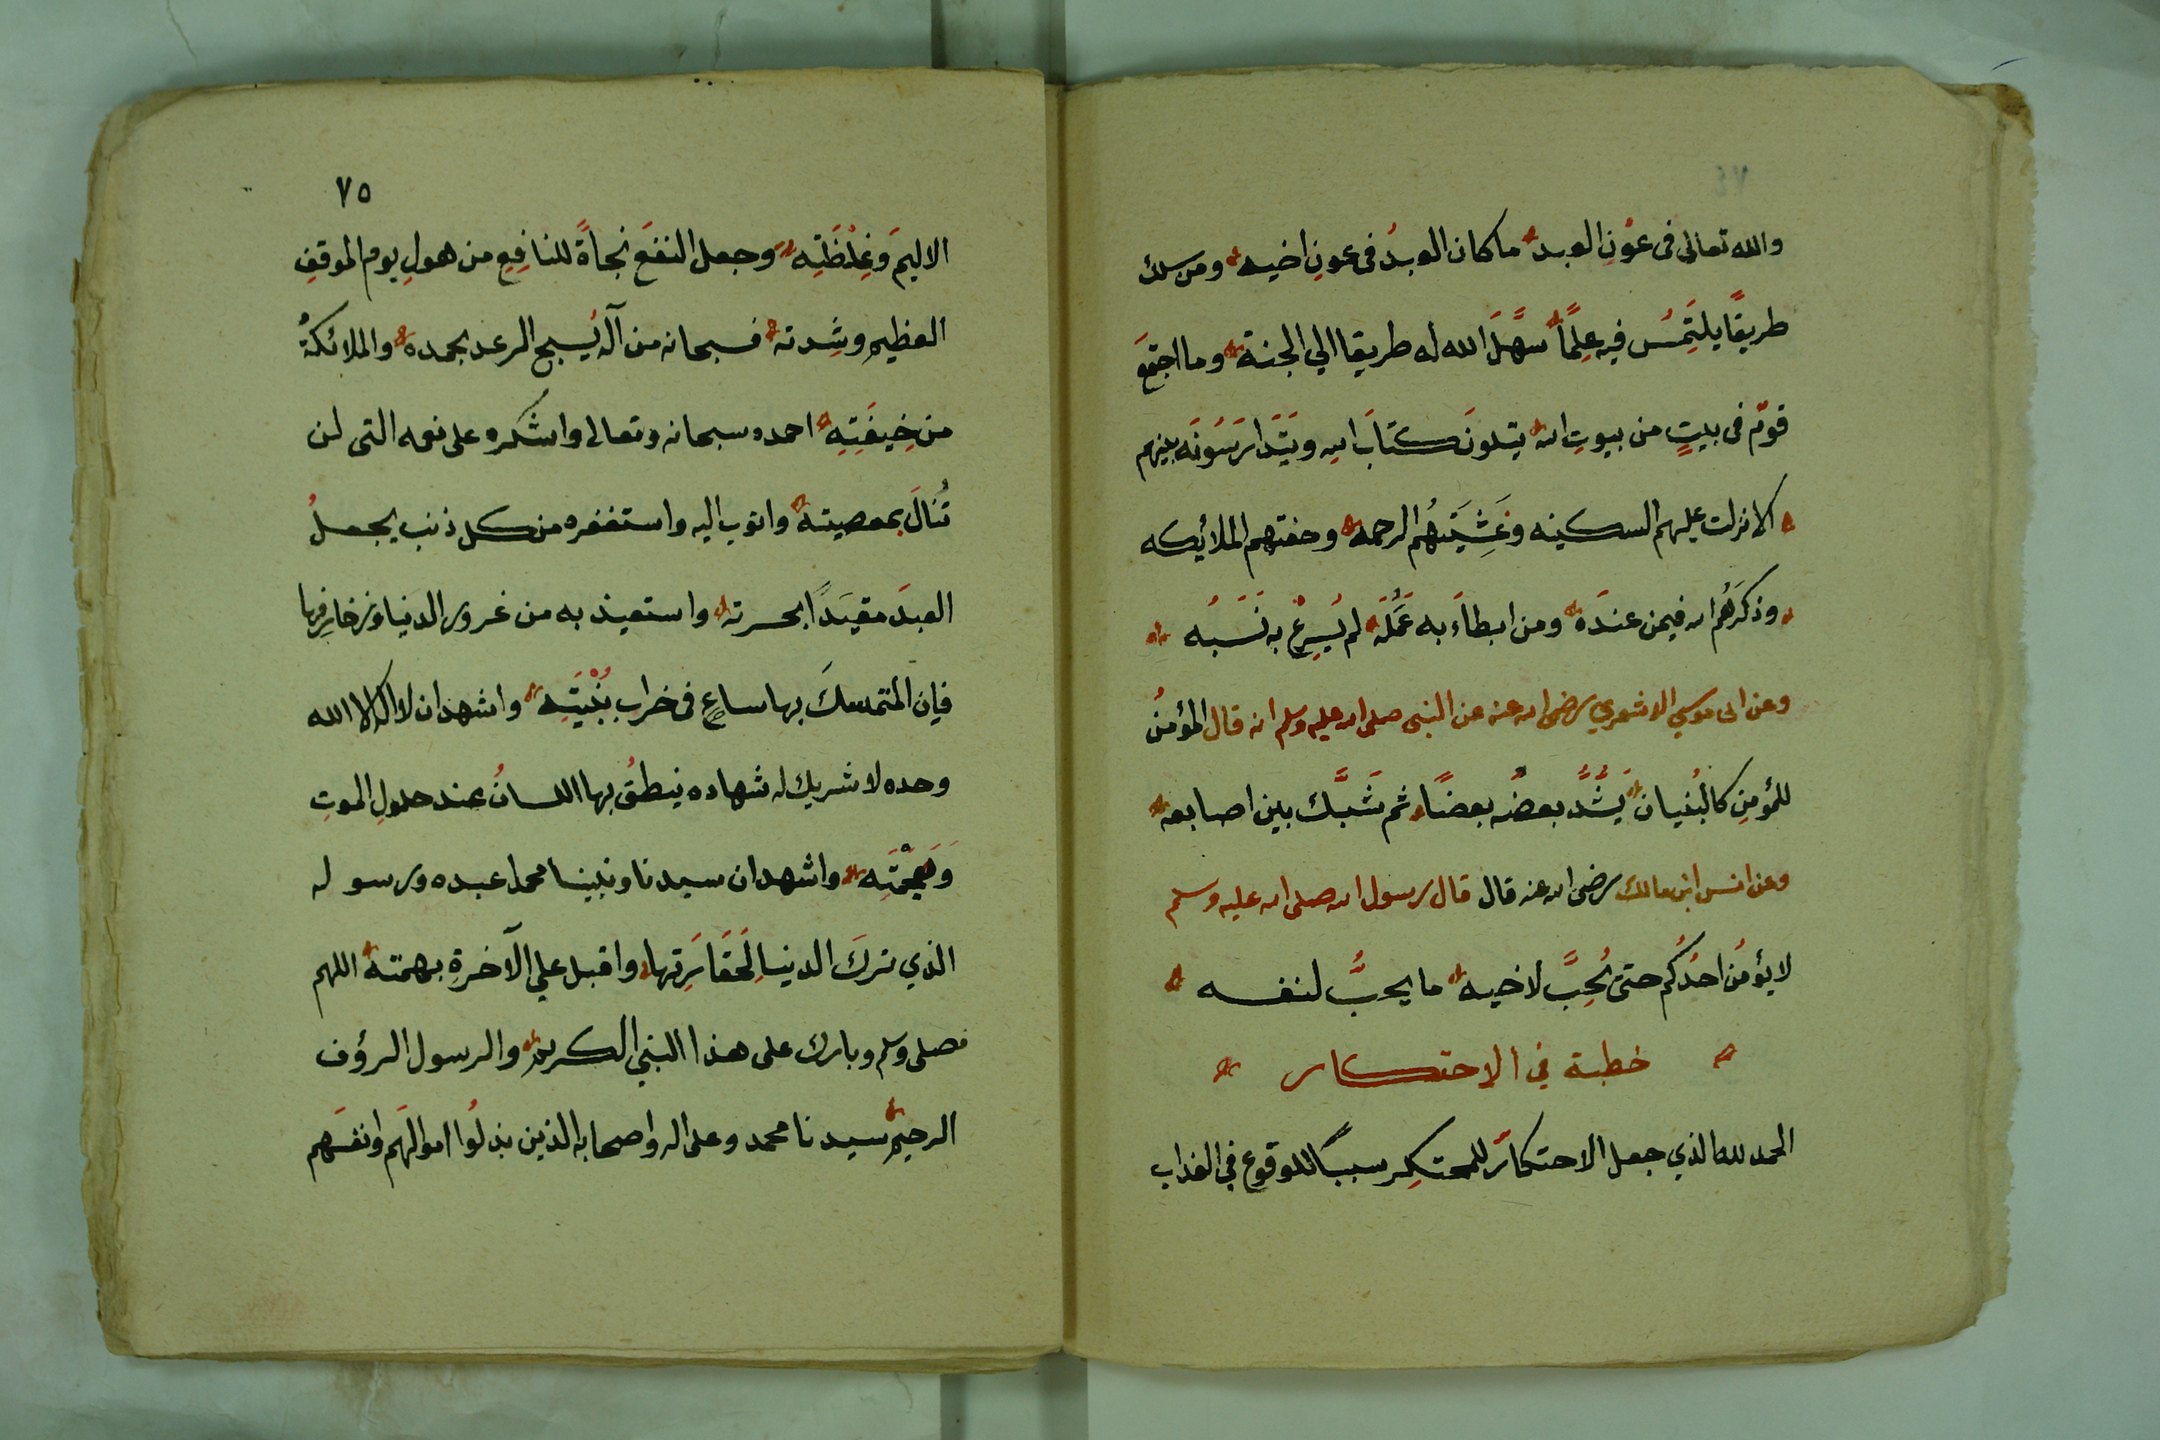 والله تعالى فى عَوْنِ العبد ما كان العبدُ فى عونِ اخيه ومن سلك
طريقًا يلتَمِسُ فيه عِلمًا سَهَّلَ الله له طريقا الي الجنة وما اجتمعَ
قومٌ فى بيتٍ من بيوتِ الله يتلونَ كتابَ الله ويَتَدارَسُونَه بينهم
الا نزلت عليهم السكينه وغَشِيَتهُم الرحمه وحفتهم الملائكه
وذكرَهُم الله فيمن عندَه ومن ابطاءَ به عَمَلُه لم يُسرِعْ به نَسَبُه
وعن ابى موسي الاشعري رضى الله عنه عن النبى صلى الله عليه وسلم انه قال المؤمنُ
للمؤمنِ كالبُنيان يَشُدُّ بعضُه بعضًا ثم شَبَّك بين اصابعه
وعن انس ابن مالك رضى الله عنه قال قال رسول الله صلى الله عليه وسلم
لا يؤمنُ احدُكُم حتى يُحِبَّ لاخيه ما يحبُّ لنفسه
خطبة في الاحتكار
الحمد لله الذي جعل الاحتكارَ للمحتكِر سببًا للوقوع في العذاب
٧٥
الاليمَ وغِلْظَتِه وجعل النفعَ نجاةً للنافِعِ من هولِ يوم الموقفِ
العظيم وشِدته فسبحانه من آله يُسبح الرعد بحمده والملائكةُ
من خِيفَتِه احمده سبحانه وتعالى واشكره على نعمه التى لن
تُنالَ بمعصيته واتوب اليه واستغفره من كل ذنب يجعلُ
العبدَ مقيَدًا بحسرته واستعيذ به من غرور الدنيا وزخارِفِها
فاِن المتمسكَ بها ساعٍ فى خراب بُنْيَتِه واشهد ان لا اله الا الله
وحده لا شريك له شهاده ينطقُ بها اللسانُ عند حلولِ الموتِ
وَهَجْمَتِه واشهد ان سيدنا ونبينا محمدا عبده ورسوله
الذي تركَ الدنيا لِحَقَارَتِها واقبل علي الآخرةِ بهمته اللهم
فصلى وسلم وبارك على هذا النبي الكريم والرسول الرؤف
الرحيمِ سيدنا محمد وعلى اله واصحابه الذين بذلُوا اموالَهم وانفسَهم